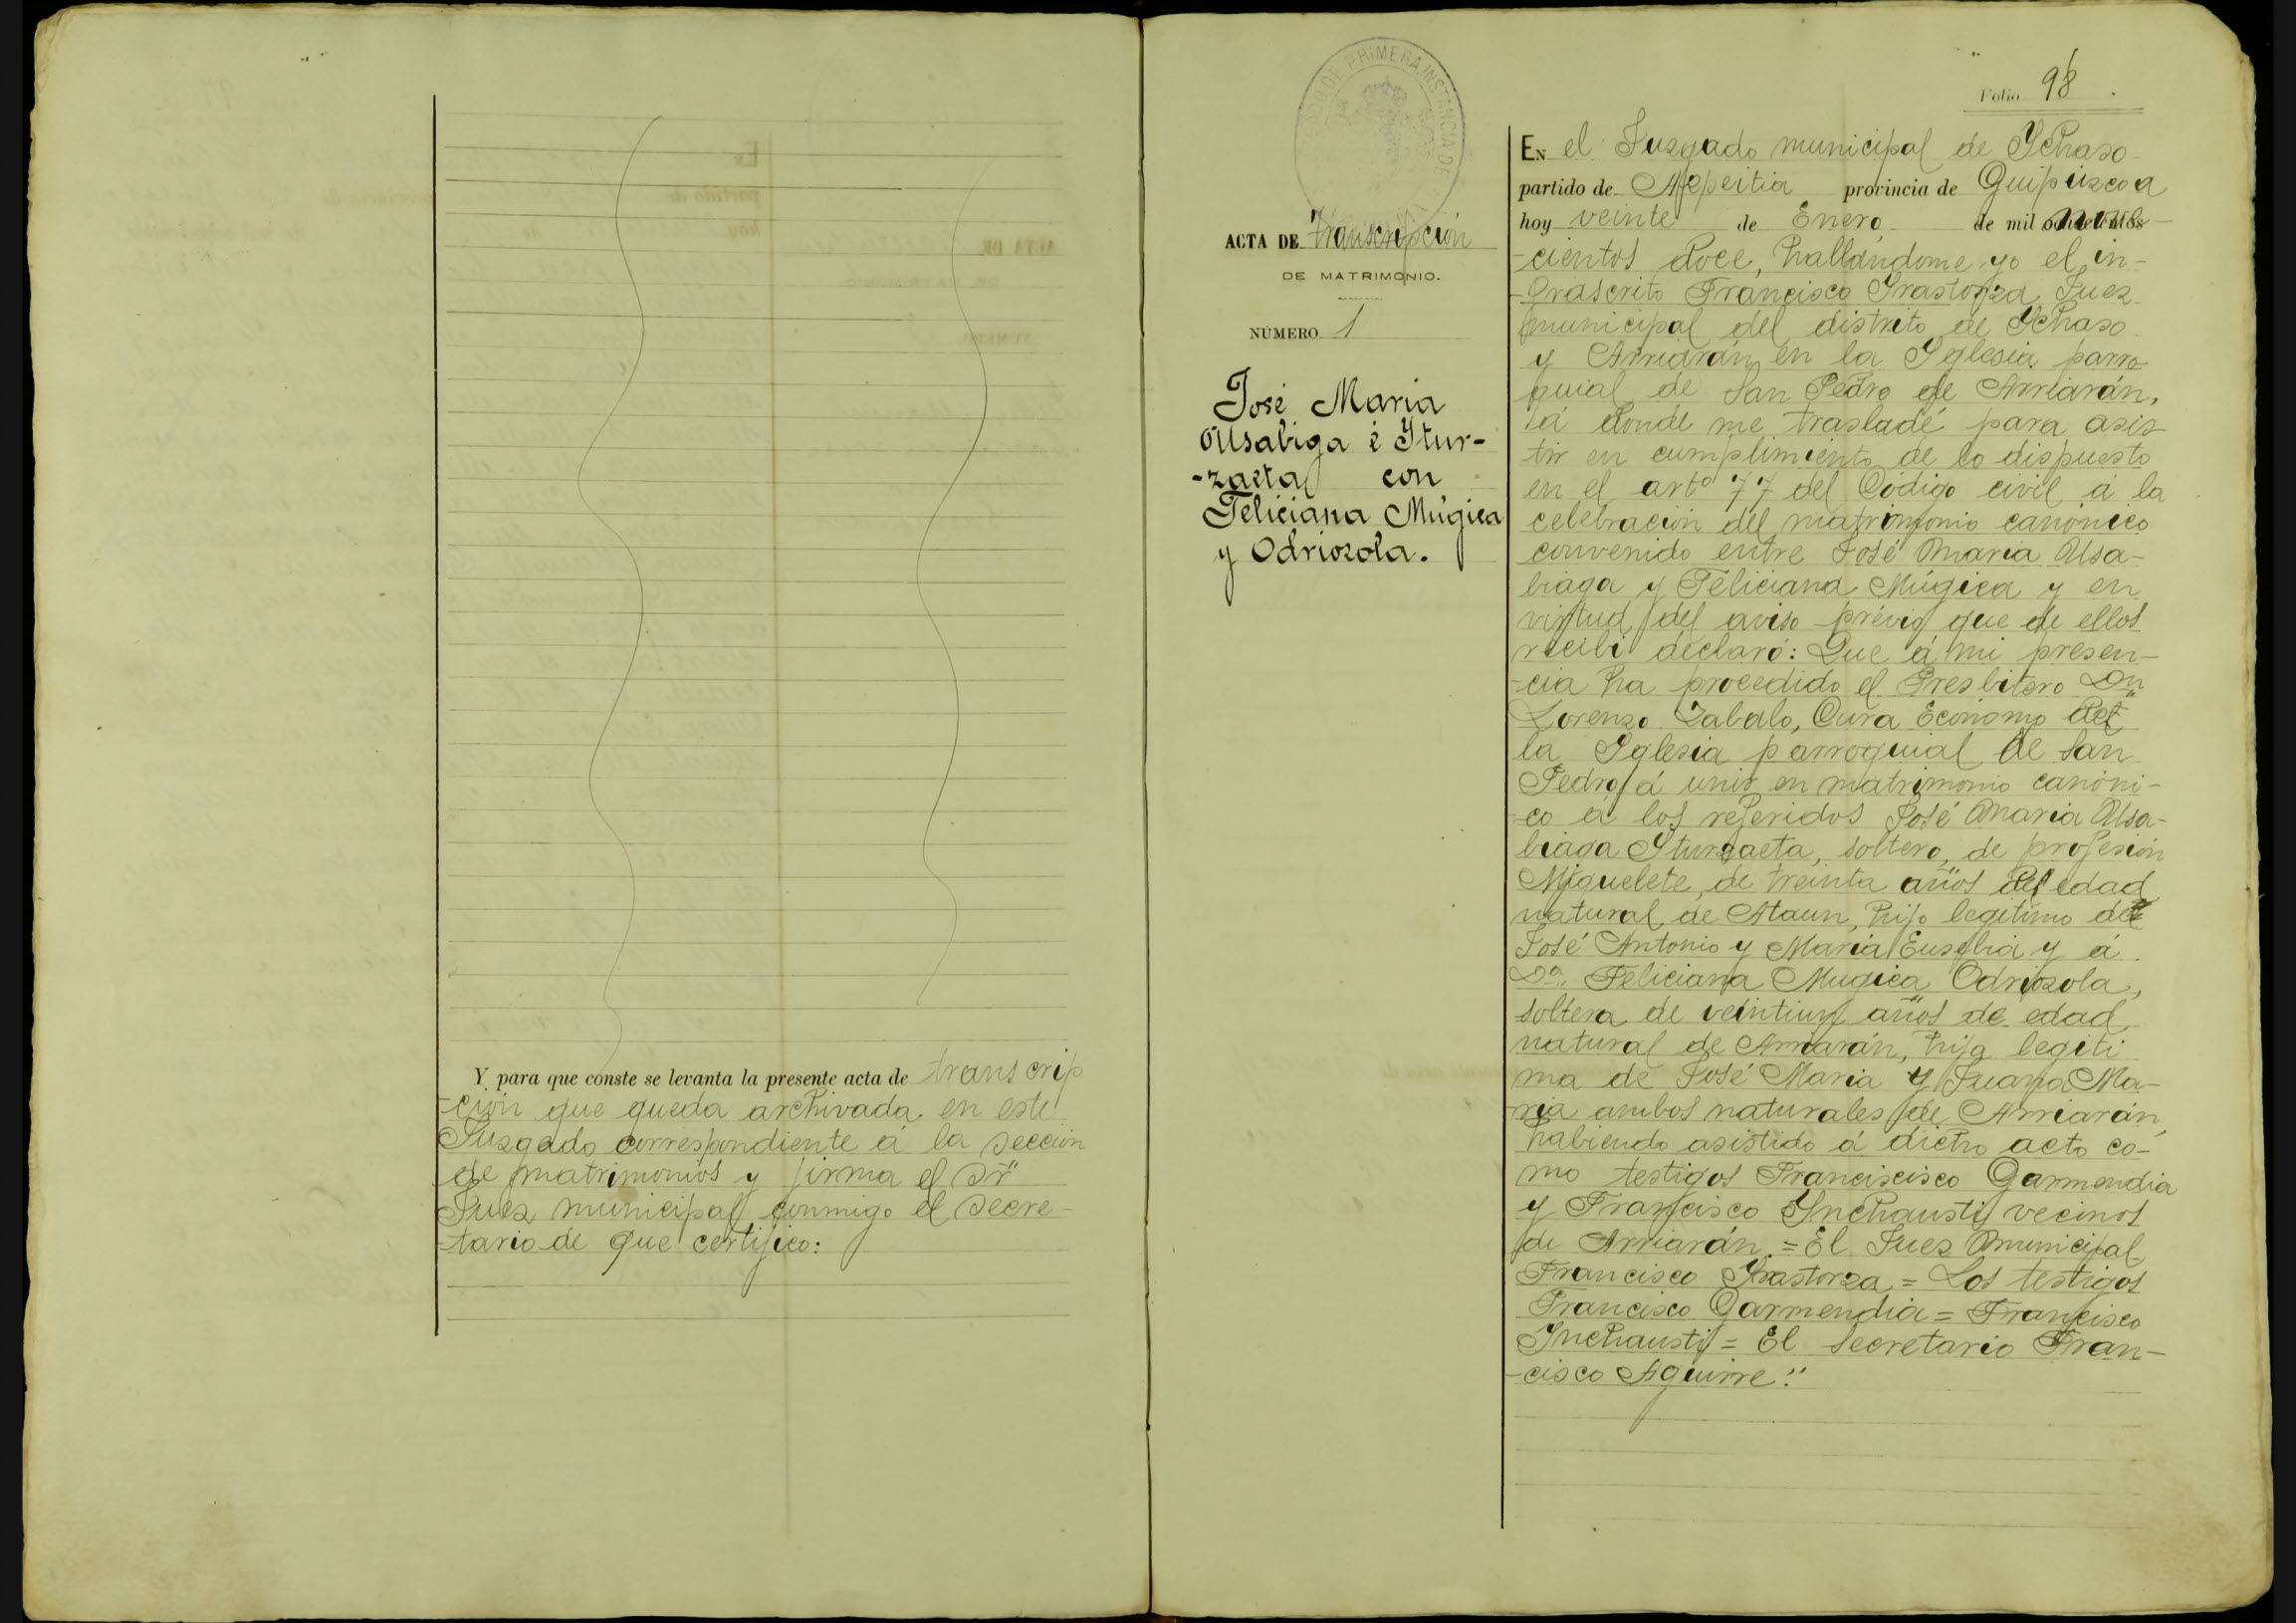 Y para que conste se levanta la presente acta de transcrip
-ción que queda archivada en este
Juzgado correspondiente á la sección
de matrimonios y firma el Sr
Juez municipal conmigo el secre-
-tario de que certifico:
DE PRIMERA INSTANCIA DE
ACTA DE transcripción
DE MATRIMONIO.
NÚMERO 1
José Maria
Usabiga é Ytur-
-zaeta con
Feliciana Múgica
y Odriozola.
Folio 98.
EN el Juzgado municipal de Ychaso
partido de Azpeitia provincia de Guipúzcoa
hoy veinte de Enero de mil nove-
-cientos doce, hallándome yo el in-
-frascrito Francisco Yrastorza Juez
municipal del distrito de Ychaso
y Arriarán en la Yglesia parro-
quial de San Pedro de Arriarán,
á donde me trasladé para asis-
tir en cumplimiento de lo dispuesto
en el artº 77 del Código civil á la
celebración del matrimonio canónico
convenido entre José Maria Usa-
biaga y Feliciana Múgica y en
virtud del aviso prévio que de ellos
recibi declaró: Que á mi presen-
-cia ha procedido el Presbitero Dn
Lorenzo Zabalo, Cura Ecónomo de
la Yglesia parroquial de San
Pedro á unir en matrimonio canóni-
-co á los referidos José Maria Usa-
biaga Yturzaeta, soltero, de profesión
Miguelete, de treinta años de edad
natural de Ataun, hijo legitimo de
José Antonio y Maria Eusebia y á
Dª Feliciana Mugica Odriozola,
soltera de veintiun años de edad
natural de Arriarán, hija legiti
ma de José Maria y Juana Ma-
ria ambos naturales de Arriarán,
habiendo asistido á dicho acto co-
mo testigos Franciscisco Garmendia
y Francisco Ynchausti vecinos
de Arriarán.=El Juez Municipal
Francisco Yrastorza,= Los testigos
Francisco Garmendia = Francisco
Ynchausti = El Secretario Fran-
-cisco Aguirre."